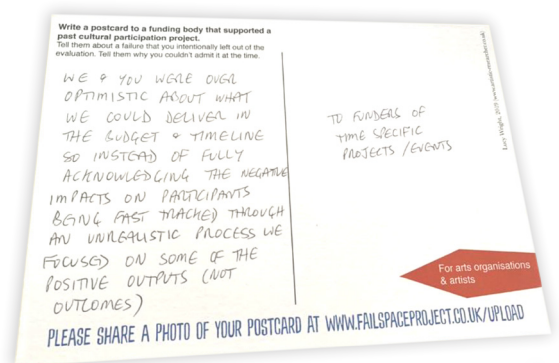 Write a postcard to a funding body that supported a
past cultural participation project.
Tell them about a failure that you intentionally left out of the
evaluation. Tell them why you couldn't admit it at the time.
WE & YOU WERE OVER
OPTIMISTIC ABOUT WHAT
WE COULD DELIVER IN
THE BUDGET & TIMELINE
SO INSTEAD OF FULLY
ACKNOWLEDGING THE NEGATIVE
IMPACTS ON PARTICIPANTS
BEING FAST TRACKED THROUGH
AN UNREALISTIC PROCESS WE
FOCUSED ON SOME OF THE
POSITIVE OUTPUTS (NOT
OUTCOMES)
TO FUNDERS OF
TIME SPECIFIC
PROJECTS / EVENTS
Lucy Wright, 2019
For arts organisations
& artists
PLEASE SHARE A PHOTO OF YOUR POSTCARD AT WWW.FAILSPACEPROJECT.CO.UK/UPLOAD